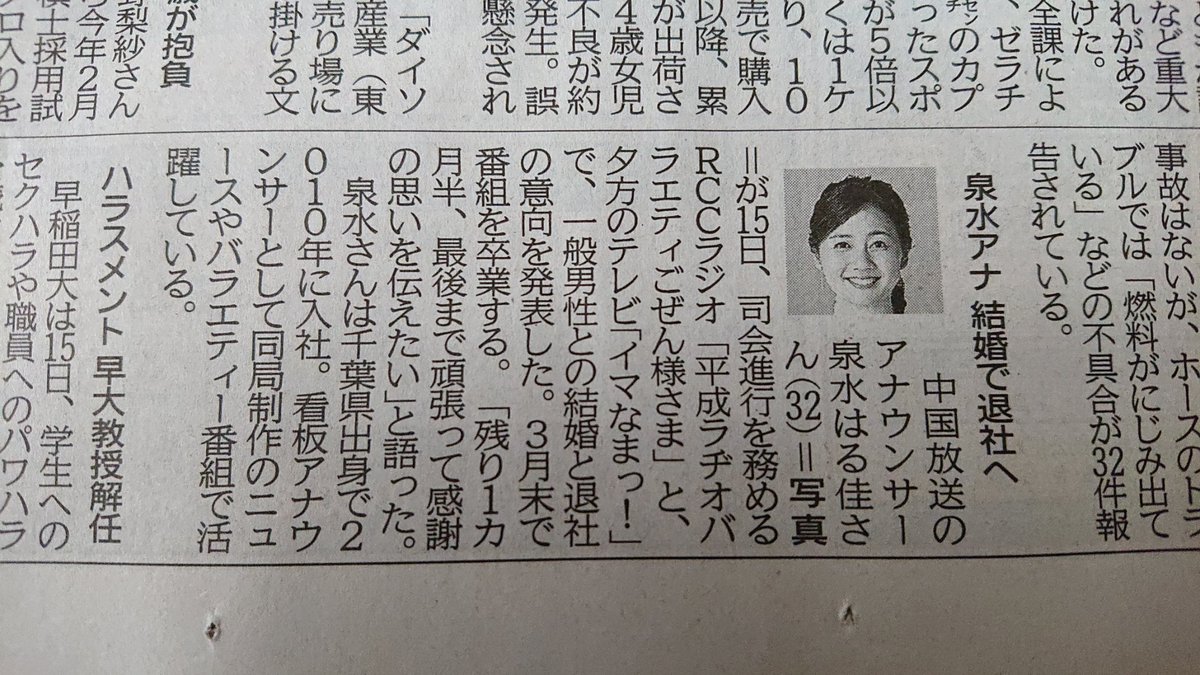 など重大
れがある
けた。
全課によ
、ゼラチ
のカプ
ったスポ
が5倍以
くは1ケ
り、10
売で購入
以降、累
が出荷さ
4歳女児
不良が約
発生。誤
懸念され
「ダイソ
産業(東
売り場に
掛ける文
が抱負
梨紗さん
今年2月
棋士採用試
ロ入りを
事故はないが、ホースのトラ
ブルでは「燃料がにじみ出て
いる」などの不具合が32件報
告されている。
泉水アナ 結婚で退社へ
中国放送の
アナウンサー
泉水はる佳さ
ん(32)=写真
=が15日、司会進行を務める
RCCラジオ「平成ラヂオバ
ラエティごぜん様さま」と、
夕方のテレビ「イマなまっ!」
で、一般男性との結婚と退社
の意向を発表した。3月末で
番組を卒業する。「残り1カ
月半、最後まで頑張って感謝
の思いを伝えたい」と語った。
泉水さんは千葉県出身で2
010年に入社。看板アナウ
ンサーとして同局制作のニュ
ースやバラエティー番組で活
躍している。
ハラスメント 早大教授解任
早稲田大は15日、学生への
セクハラや職員へのパワハラ